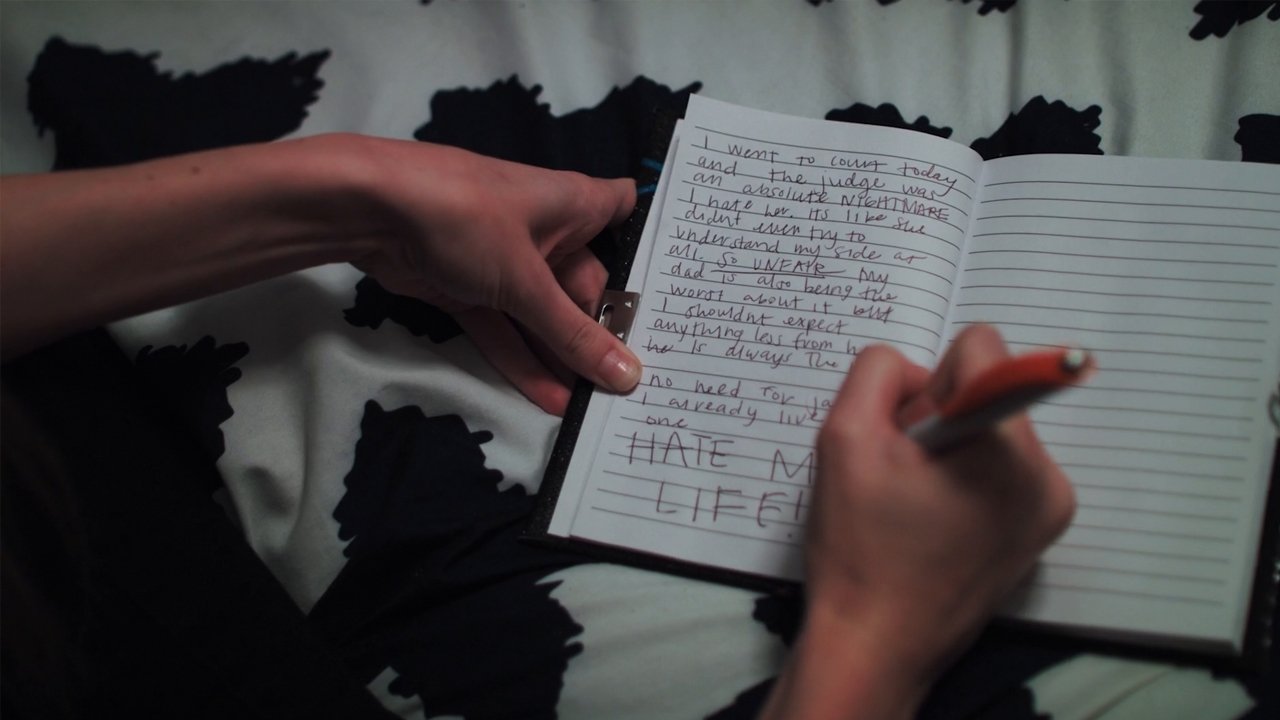 I went to court today
and the judge was
an absolute NIGHTMARE
I hate her. Its like she
didnt even try to
understand my side at
all. SO UNFAIR my
dad is also being the
worst about it but
I shouldnt expect
anything less from
he is always the
no need for
I already live
one
HATE
LIFE!